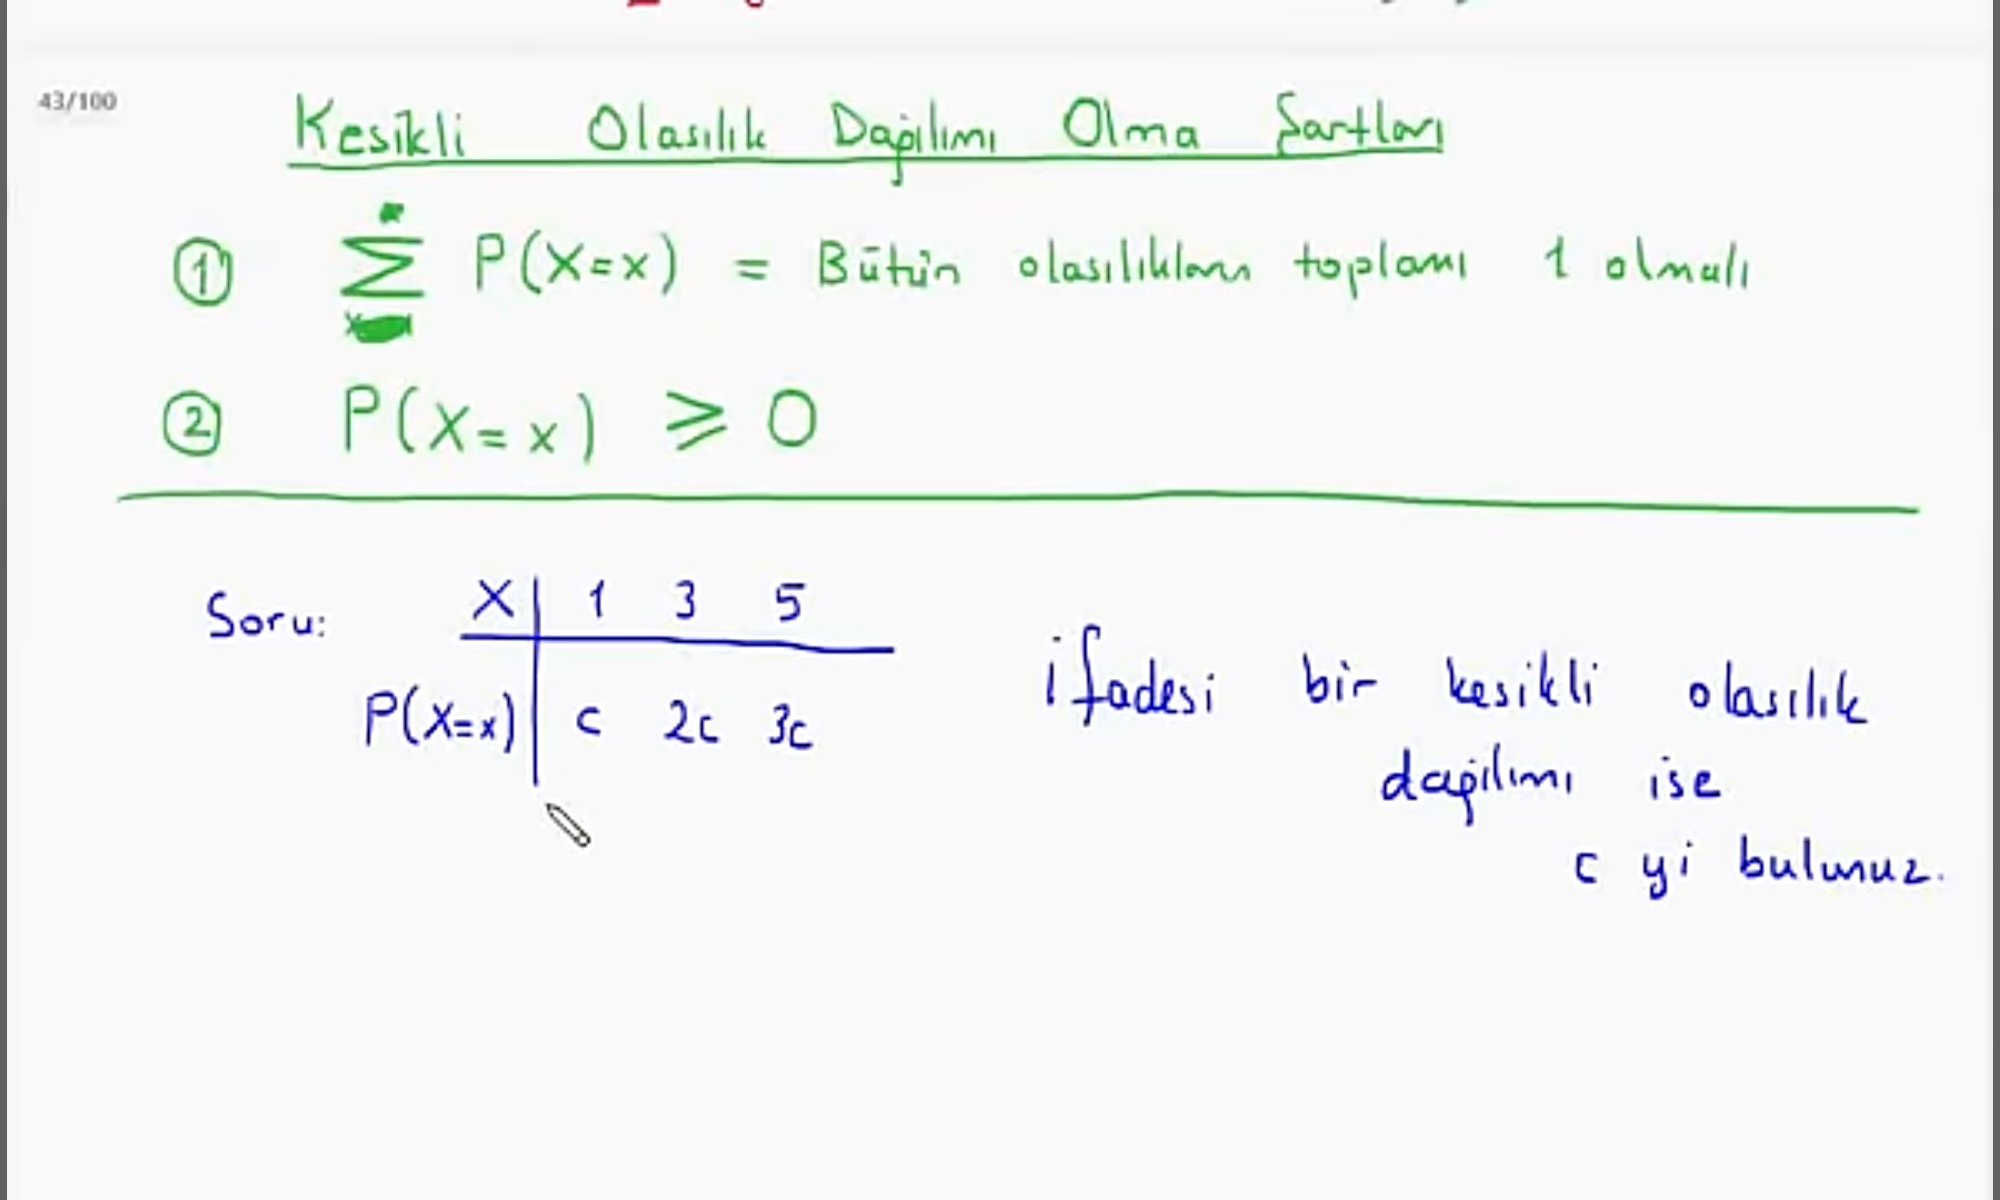 43/100
Kesikli Olasılık Dağılımı Olma Şartları
① ∑ P(X=x) = Bütün olasılıkların toplamı 1 olmalı
x
② P(X=x) ≥ 0
Soru: X 1 3 5
P(X=x) c 2c 3c
ifadesi bir kesikli olasılık
dağılımı ise
c yi bulunuz.